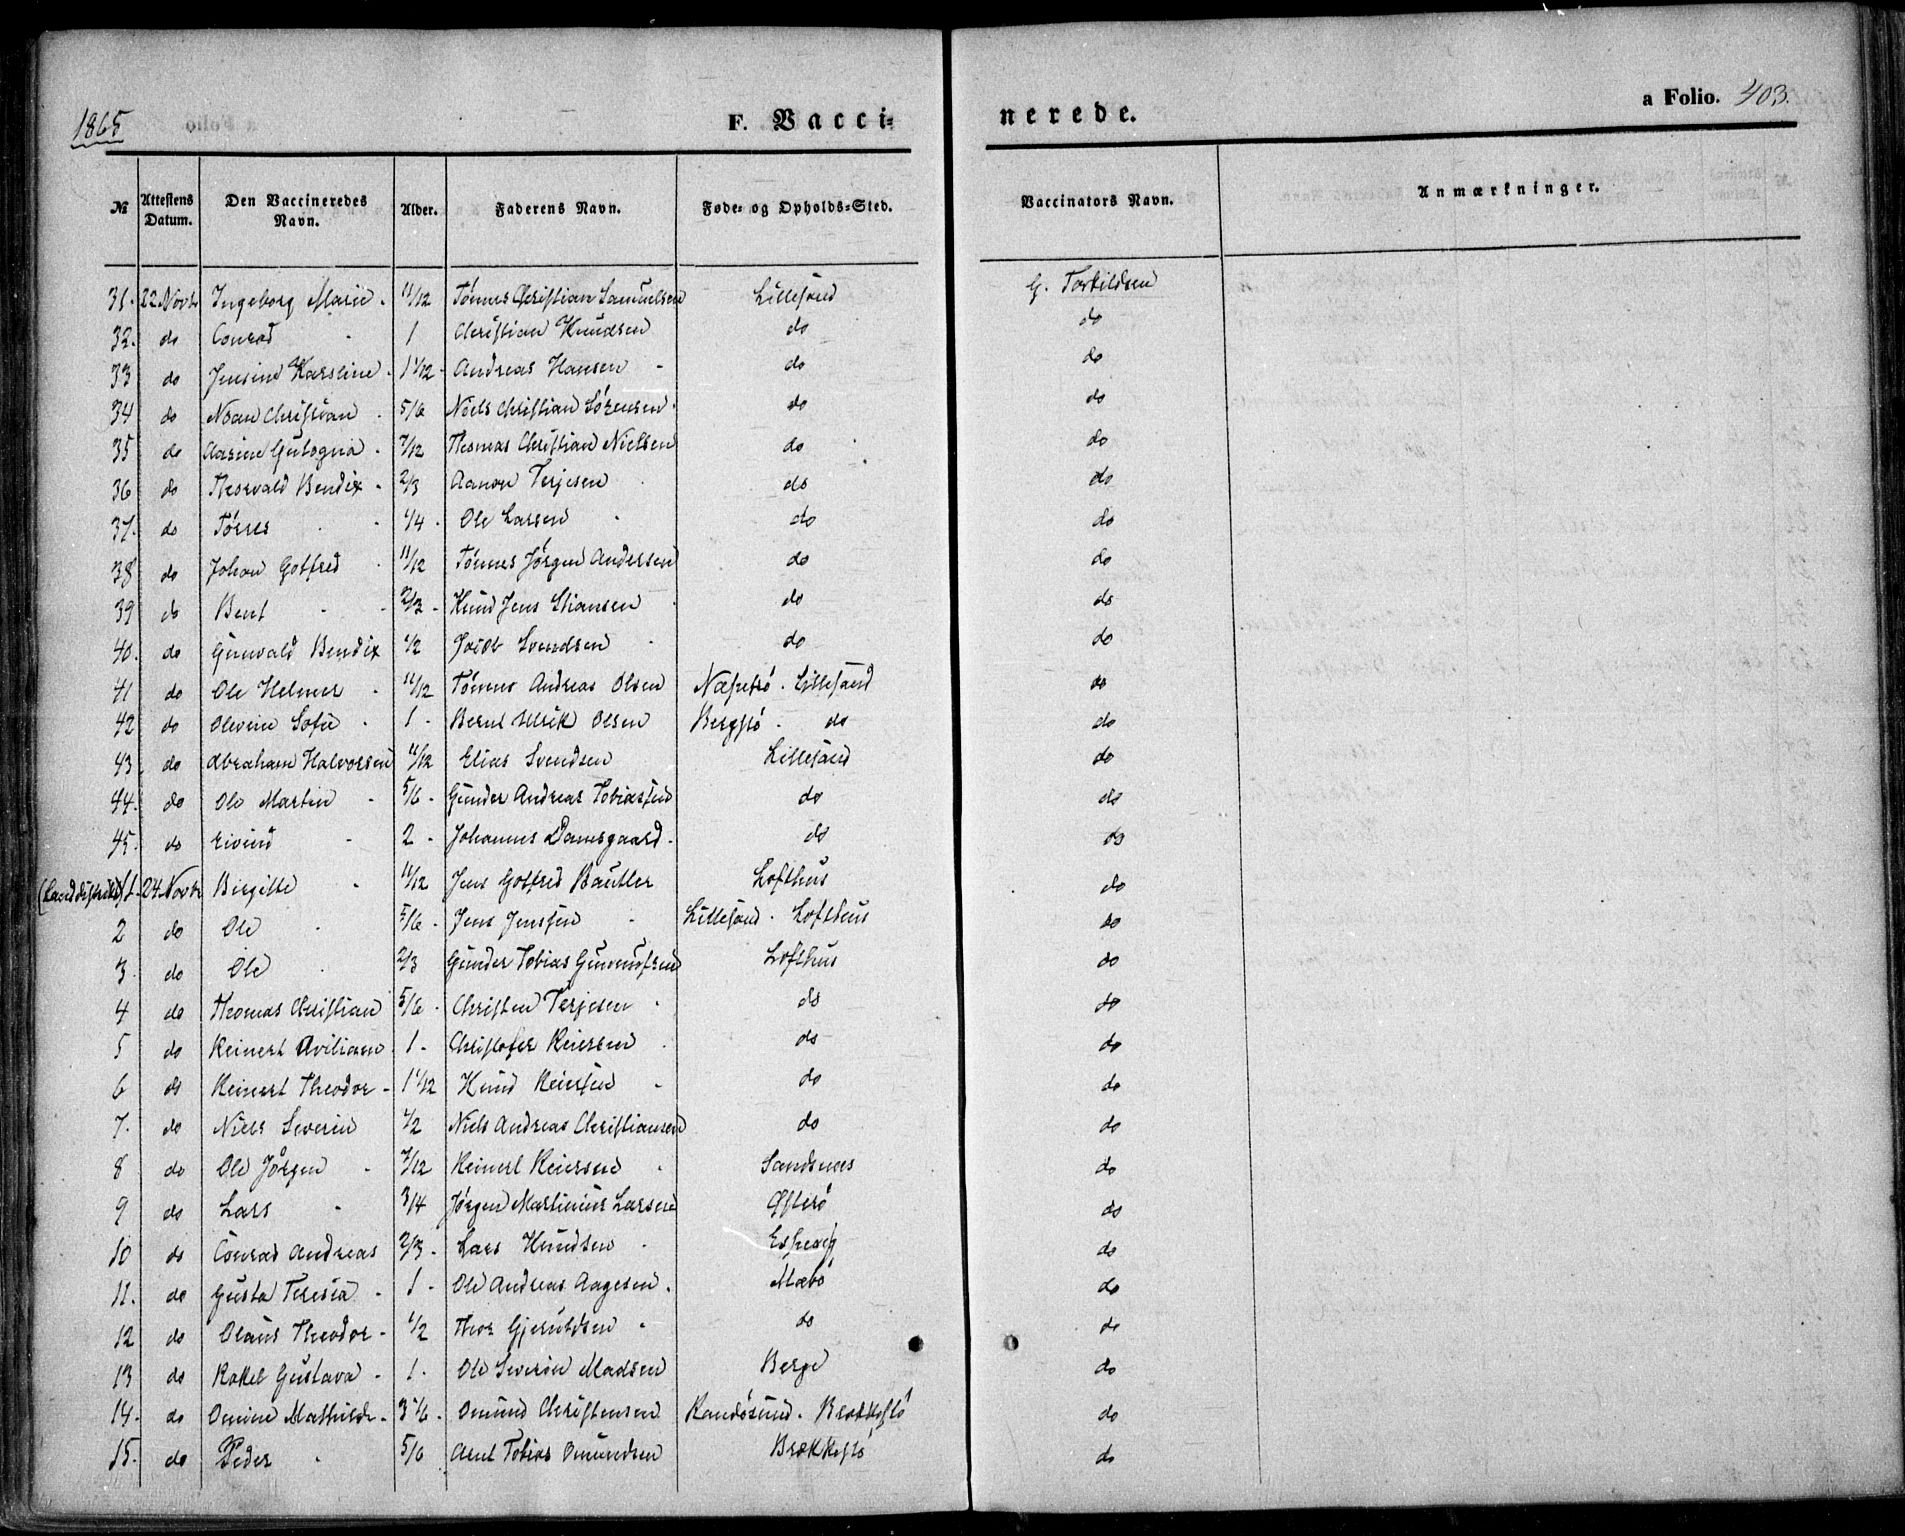 1865
F. Vacci=
nerede.
a Folio. 403.
№ Attestens Datum. Den Vaccineredes Navn. Alder. Faderens Navn. Føde- og Opholds-Sted. Vaccinators Navn. Anmærkninger.
31. 22 Novbr Ingeborg Marie 11/12 Tønnes Christian Samuelsen Lillesand G. Torkildsen
32. do Conrad 1 Christian Knudsen do do
33 do Jensine Karoline 1 1/12 Andreas Hansen do do
34 do Christian 5/6 Niels Christian Sørensen do do
35 do 7/12 Thomas Christian Nielsen do do
36 do Thorvald Bendix 2/3 Aanon Terjesen do do
37. do Tørres 1/4 Ole Larsen do do
38 do Johan Gotfred 11/12 Tønnes Jørgen Andersen do do
39 do Bent 2/3 Knud Jens Stiansen do do
40. do Gunvald Bendix 1/2 Jacob Svendsen do do
41 do Ole Helmer 11/12 Tønnes Andreas Olsen Lillesand do
42 do Olevine Sofie 1 Bernt Ulrik Olsen Bergsø do do
43 do Abraham Halvorsen 11/12 Elias Svendsen Lillesand do
44. do Ole Martin 5/6 Gunder Andreas Tobiassen do do
45. do Eivind 2 Johannes Damsgaard do do
(Landdistrikt) 1. 24. Novbr Birgitte 11/12 Jens Gotfred Lofthus do
2 do Ole 5/6 Jens Jenssen Lillesand. Lofthus do
3 do Ole 2/3 Gunder Tobias Lofthus do
4 do Thomas Christian 5/6 Christen Terjesen do do
5 do Reinert 1 Christofer Reiersen do do
6 do Reinert Theodor 1 1/12 Knud Reiersen do do
7. do Niels Severin 1/2 Niels Andreas Christiansen do do
8 do Ole Jørgen 7/12 Reinert Reiersen Sandsnes do
9 do Lars 3/4 Jørgen Martinius Larsen Østerø do
10 do Conrad Andreas 2/3 Lars Knudsen Espevig do
11. do Gusta Teresia 1 Ole Andreas Aagesen Mæbø do
12 do Olaus Theodor 1/2 Thor Gjeruldsen do do
13 do Rakel Gustava 1 Ole Severin Madsen Berge do
14. do Omine Mathilde 3 5/6 Omund Christensen Randøsund. Brækkestø do
15. do Peder 5/6 Arnt Tobias Omundsen Brækkestø do